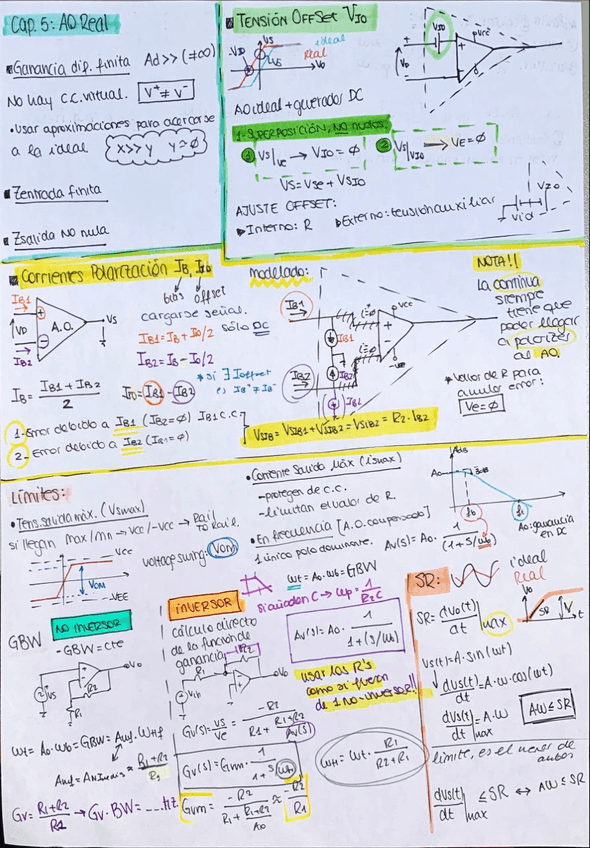 Cap. 5: AO Real
■ Ganancia dif. finita Ad >> (≠∞)
No hay c.c. virtual. V⁺ ≠ V⁻
• Usar aproximaciones para acercarse
a la ideal x>>y y≃∅
■ Zentrada finita
■ Zsalida NO nula
■ TENSIÓN OFFSET VIO
VS
ideal
Real
VD
VIO
VCC
AO ideal + generador DC
1- SUPERPOSICIÓN, NO nudos.
① VS|VE → VIO = ∅
② VS|VIO → VE = ∅
VS = VSE + VSIO
AJUSTE OFFSET:
▷ Interno: R ▷ Externo: tensión auxiliar
VIO
■ Corrientes Polarización IB, IIO
bias offset
IB1
VD
A.O.
VS
IB2
cargarse señal.
SÓLO DC
IB1 = IB + IO/2
IB2 = IB - IO/2
IB = (IB1 + IB2)/2
IIO = IB1 - IB2
* si ∃ Ioffset
1- Error debido a IB1 (IB2=∅) IB1 c.c.
2- Error debido a IB2 (IB1=∅)
modelado:
IB1
IB2
VCC
VSIB = VSIB1 + VSIB2 = VSIB2 = R2 · IB2
NOTA!!
La continua
siempre
tiene que
poder llegar
a polarizar
al AO.
* Valor de R para
anular error:
Ve=∅
Límites:
• Tens. salida máx. (Vsmax)
si llegan max/min → VCC/-VCC → Rail
TO Rail.
VCC
VOM
-VEE
voltage swing: VOM
• Corriente Salida Máx (ismax)
- protegen de c.c.
- limitan el valor de R.
• En frecuencia [A.O. compensado]
1 único polo dominante. Av(s) = A0 · 1/(1+s/ωb)
AdB
A0
3dB
fb
ft
A0: ganancia
en DC
ωt = A0 · ωb = GBW
si añaden C → ωp = 1/R2C
Av(s) = A0 · 1/(1+(s/ωb))
usar las R's
como si fuera
de 1 no-inversor!!
GBW NO INVERSOR
- GBW = cte
VS
R1
R2
VO
ωt = A0 · ωb = GBW = Auf · ωHf
R1+R2/R1
Gv = (R1+R2)/R1 → Gv · BW = ___ Hz
INVERSOR
cálculo directo
de la función de
ganancia.
R1
R2
VO
Gv(s) = VS/VE = -R2/(R1 + (R1+R2)/Av(s))
Gv(s) = Gvm · 1/(1+s/ωH)
Gvm = -R2/(R1 + (R1+R2)/A0) ≃ -R2/R1
ωH = ωt · R1/(R2+R1)
SR:
ideal
Real
SR = dvo(t)/dt |max
VO
SR
t
vs(t) = A · sin(ωt)
dvs(t)/dt = A · ω · cos(ωt)
dvs(t)/dt |max = A · ω
Aω ≤ SR
límite, es el menor de
ambos
dvs(t)/dt |max ≤ SR ↔ Aω ≤ SR